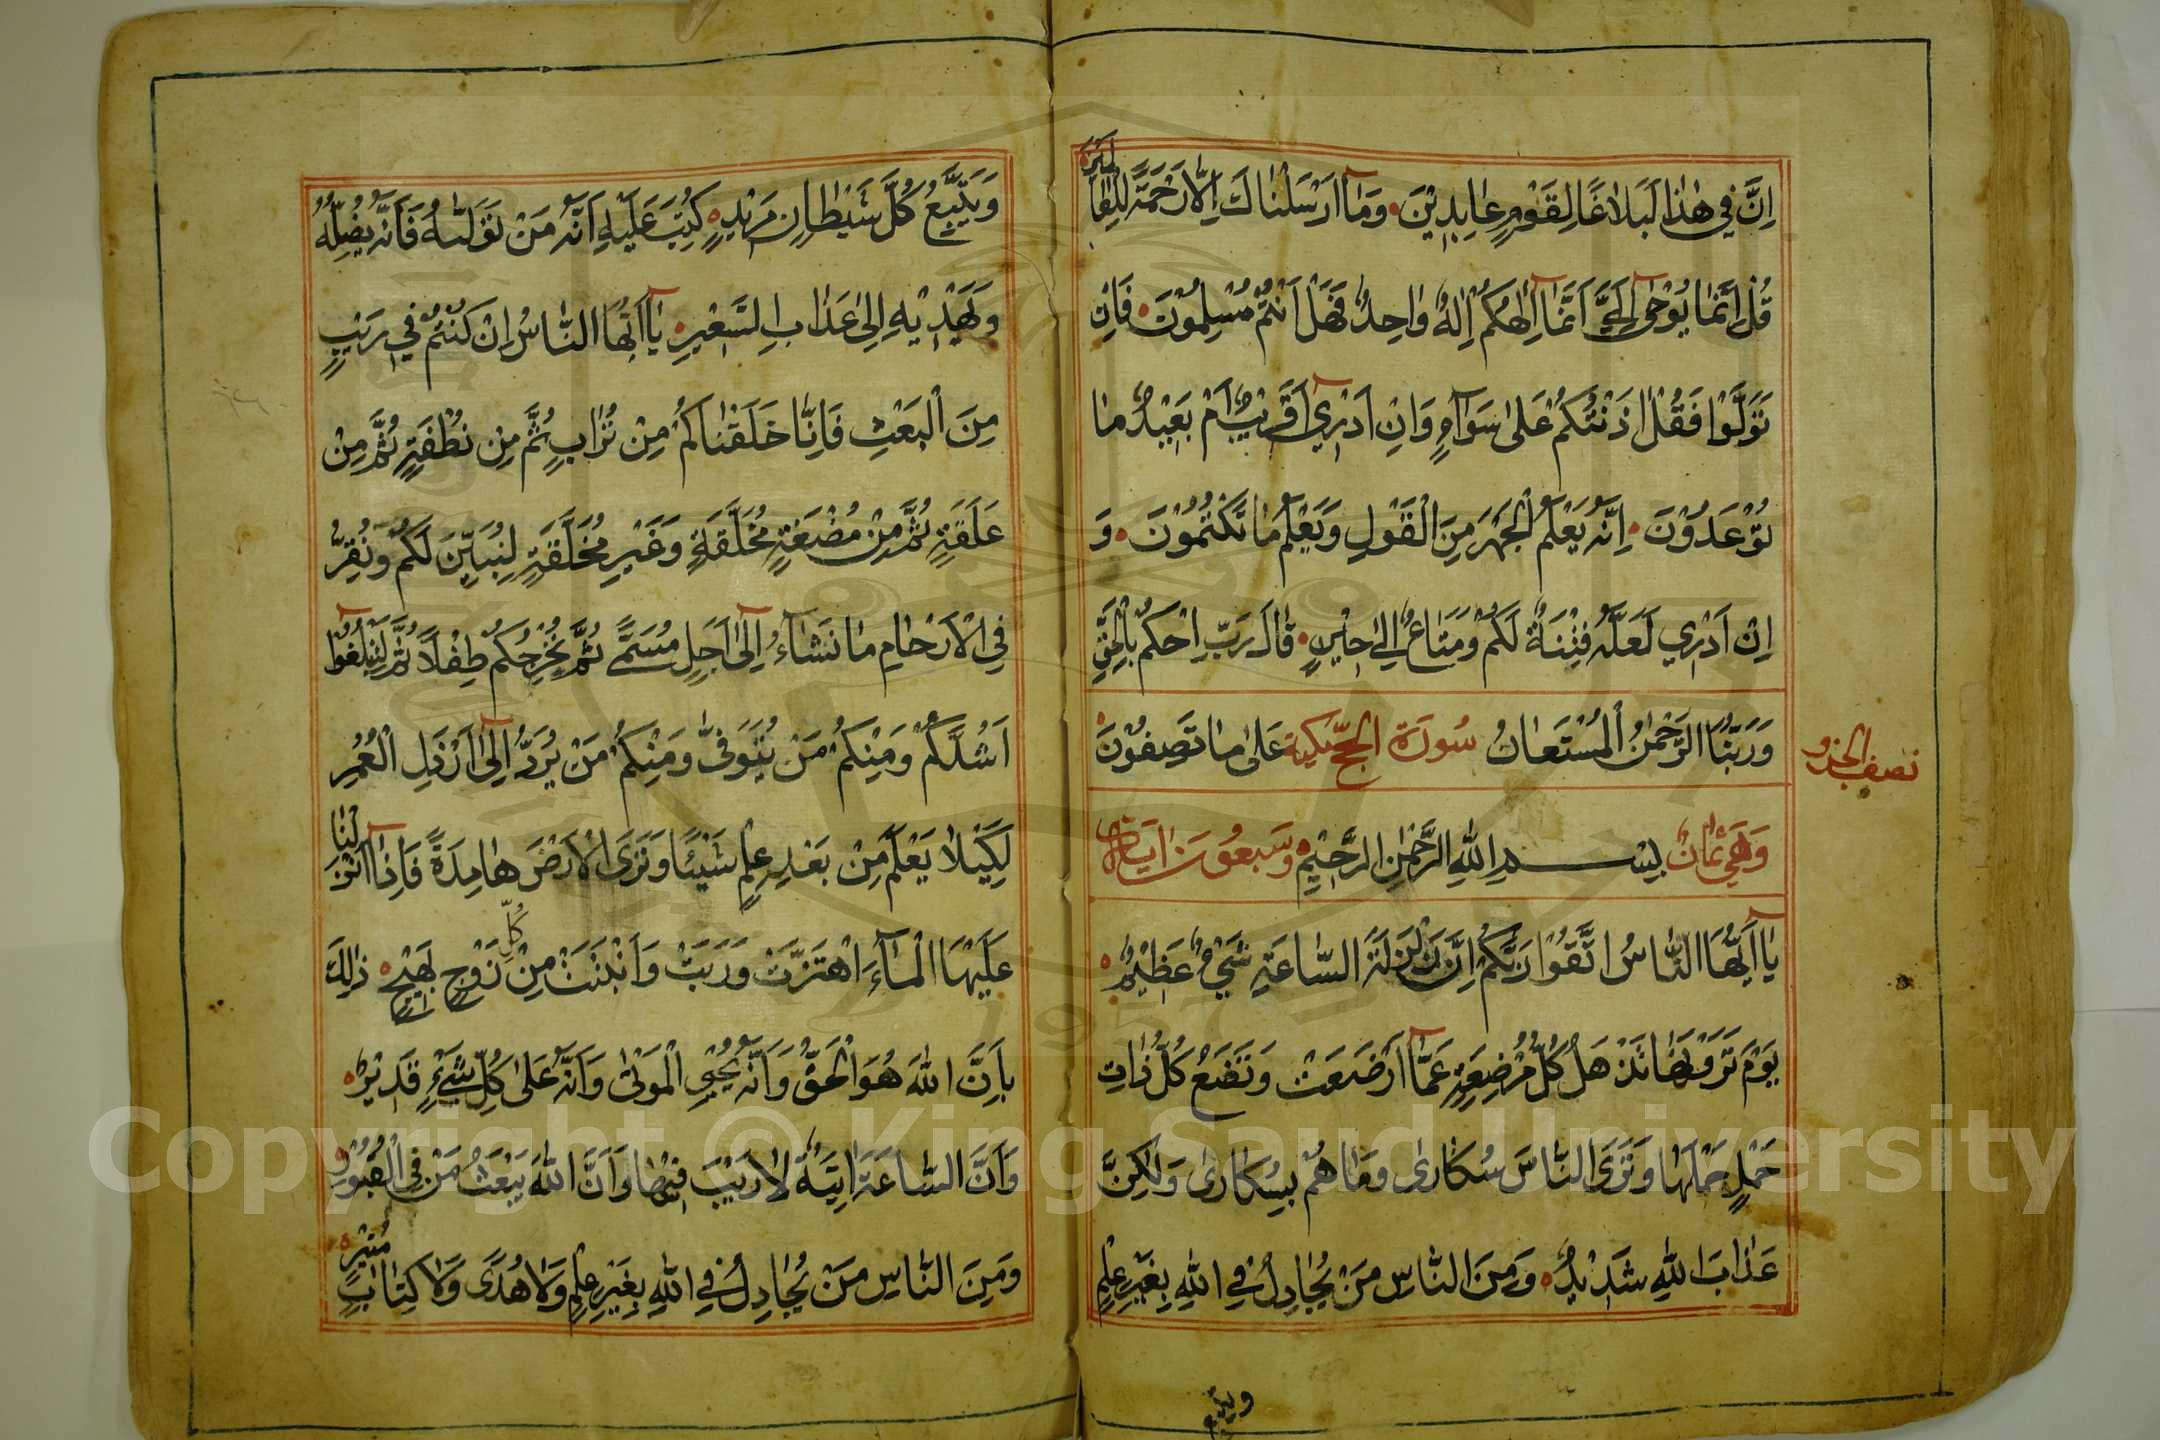 اِنَّ فِي هٰذَا لَبَلَاغًا لِقَوْمٍ عَابِدِيْنَ وَمَآ اَرْسَلْنَاكَ اِلَّا رَحْمَةً لِلْعَالَمِيْنَ
قُلْ اِنَّمَا يُوْحٰى اِلَيَّ اَنَّمَآ اِلٰهُكُمْ اِلٰهٌ وَاحِدٌ فَهَلْ اَنْتُمْ مُسْلِمُوْنَ فَاِنْ
تَوَلَّوْا فَقُلْ اٰذَنْتُكُمْ عَلٰى سَوَآءٍ وَاِنْ اَدْرِيْٓ اَقَرِيْبٌ اَمْ بَعِيْدٌ مَا
تُوْعَدُوْنَ اِنَّهُ يَعْلَمُ الْجَهْرَ مِنَ الْقَوْلِ وَيَعْلَمُ مَا تَكْتُمُوْنَ وَ
اِنْ اَدْرِيْ لَعَلَّهُ فِتْنَةٌ لَكُمْ وَمَتَاعٌ اِلٰى حِيْنٍ قَالَ رَبِّ احْكُمْ بِالْحَقِّ
وَرَبُّنَا الرَّحْمٰنُ الْمُسْتَعَانُ سُورَة الحَجّ مكية عَلٰى مَا تَصِفُوْنَ
نصف الجزو
وَهِيَ ثمَان بِسْمِ اللّٰهِ الرَّحْمٰنِ الرَّحِيْمِ وَسَبعُوْنَ اٰيَات
يَآ اَيُّهَا النَّاسُ اتَّقُوْا رَبَّكُمْ اِنَّ زَلْزَلَةَ السَّاعَةِ شَيْءٌ عَظِيْمٌ
يَوْمَ تَرَوْنَهَا تَذْهَلُ كُلُّ مُرْضِعَةٍ عَمَّآ اَرْضَعَتْ وَتَضَعُ كُلُّ ذَاتِ
حَمْلٍ حَمْلَهَا وَتَرَى النَّاسَ سُكَارٰى وَمَا هُمْ بِسُكَارٰى وَلٰكِنَّ
عَذَابَ اللّٰهِ شَدِيْدٌ وَمِنَ النَّاسِ مَنْ يُجَادِلُ فِي اللّٰهِ بِغَيْرِ عِلْمٍ
ويتبع
وَيَتَّبِعُ كُلَّ شَيْطَانٍ مَرِيْدٍ كُتِبَ عَلَيْهِ اَنَّهُ مَنْ تَوَلَّاهُ فَاَنَّهُ يُضِلُّهُ
وَيَهْدِيْهِ اِلٰى عَذَابِ السَّعِيْرِ يَآ اَيُّهَا النَّاسُ اِنْ كُنْتُمْ فِيْ رَيْبٍ
مِنَ الْبَعْثِ فَاِنَّا خَلَقْنَاكُمْ مِنْ تُرَابٍ ثُمَّ مِنْ نُطْفَةٍ ثُمَّ مِنْ
عَلَقَةٍ ثُمَّ مِنْ مُضْغَةٍ مُخَلَّقَةٍ وَغَيْرِ مُخَلَّقَةٍ لِنُبَيِّنَ لَكُمْ وَنُقِرُّ
فِي الْاَرْحَامِ مَا نَشَآءُ اِلٰٓى اَجَلٍ مُسَمًّى ثُمَّ نُخْرِجُكُمْ طِفْلًا ثُمَّ لِتَبْلُغُوْٓا
اَشُدَّكُمْ وَمِنْكُمْ مَنْ يُتَوَفّٰى وَمِنْكُمْ مَنْ يُرَدُّ اِلٰٓى اَرْذَلِ الْعُمُرِ
لِكَيْلَا يَعْلَمَ مِنْ بَعْدِ عِلْمٍ شَيْئًا وَتَرَى الْاَرْضَ هَامِدَةً فَاِذَآ اَنْزَلْنَا
عَلَيْهَا الْمَآءَ اهْتَزَّتْ وَرَبَتْ وَاَنْبَتَتْ مِنْ كُلِّ زَوْجٍ بَهِيْجٍ ذٰلِكَ
بِاَنَّ اللّٰهَ هُوَ الْحَقُّ وَاَنَّهُ يُحْيِي الْمَوْتٰى وَاَنَّهُ عَلٰى كُلِّ شَيْءٍ قَدِيْرٌ
وَاَنَّ السَّاعَةَ اٰتِيَةٌ لَا رَيْبَ فِيْهَا وَاَنَّ اللّٰهَ يَبْعَثُ مَنْ فِي الْقُبُوْرِ
وَمِنَ النَّاسِ مَنْ يُجَادِلُ فِي اللّٰهِ بِغَيْرِ عِلْمٍ وَلَا هُدًى وَلَا كِتَابٍ مُنِيْرٍ
Copyright © King Saud University
1957